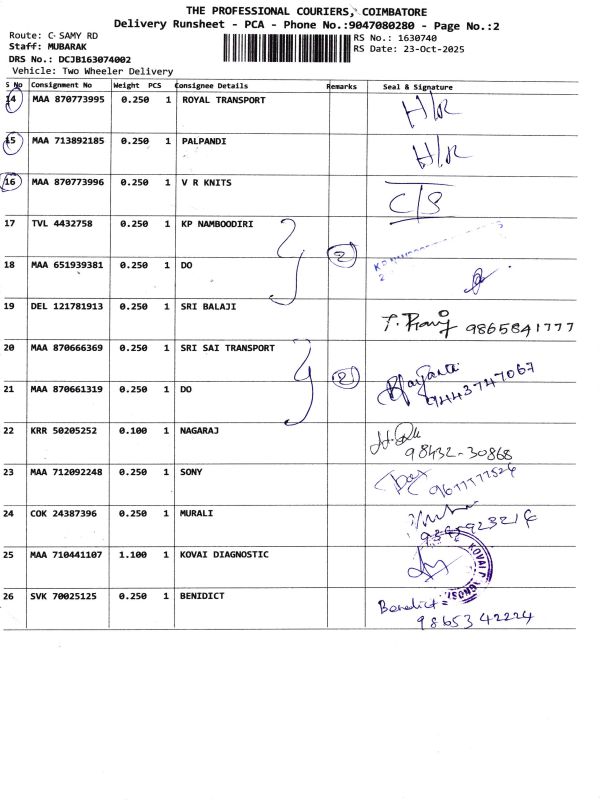 THE PROFESSIONAL COURIERS, COIMBATORE
Delivery Runsheet - PCA - Phone No.:9047080280 - Page No.:2
Route: C SAMY RD RS No.: 1630740
Staff: MUBARAK RS Date: 23-Oct-2025
DRS No.: DCJB163074002
Vehicle: Two Wheeler Delivery
S No Consignment No Weight PCS Consignee Details Remarks Seal & Signature
14 MAA 870773995 0.250 1 ROYAL TRANSPORT H/R
15 MAA 713892185 0.250 1 PALPANDI H/R
16 MAA 870773996 0.250 1 V R KNITS C/S
17 TVL 4432758 0.250 1 KP NAMBOODIRI 2
18 MAA 651939381 0.250 1 DO
19 DEL 121781913 0.250 1 SRI BALAJI 9865841777
20 MAA 870666369 0.250 1 SRI SAI TRANSPORT 2
21 MAA 870661319 0.250 1 DO 9443747067
22 KRR 50205252 0.100 1 NAGARAJ 98432-30868
23 MAA 712092248 0.250 1 SONY
24 COK 24387396 0.250 1 MURALI
25 MAA 710441107 1.100 1 KOVAI DIAGNOSTIC KOVAI
26 SVK 70025125 0.250 1 BENIDICT Benedict
98653 42224